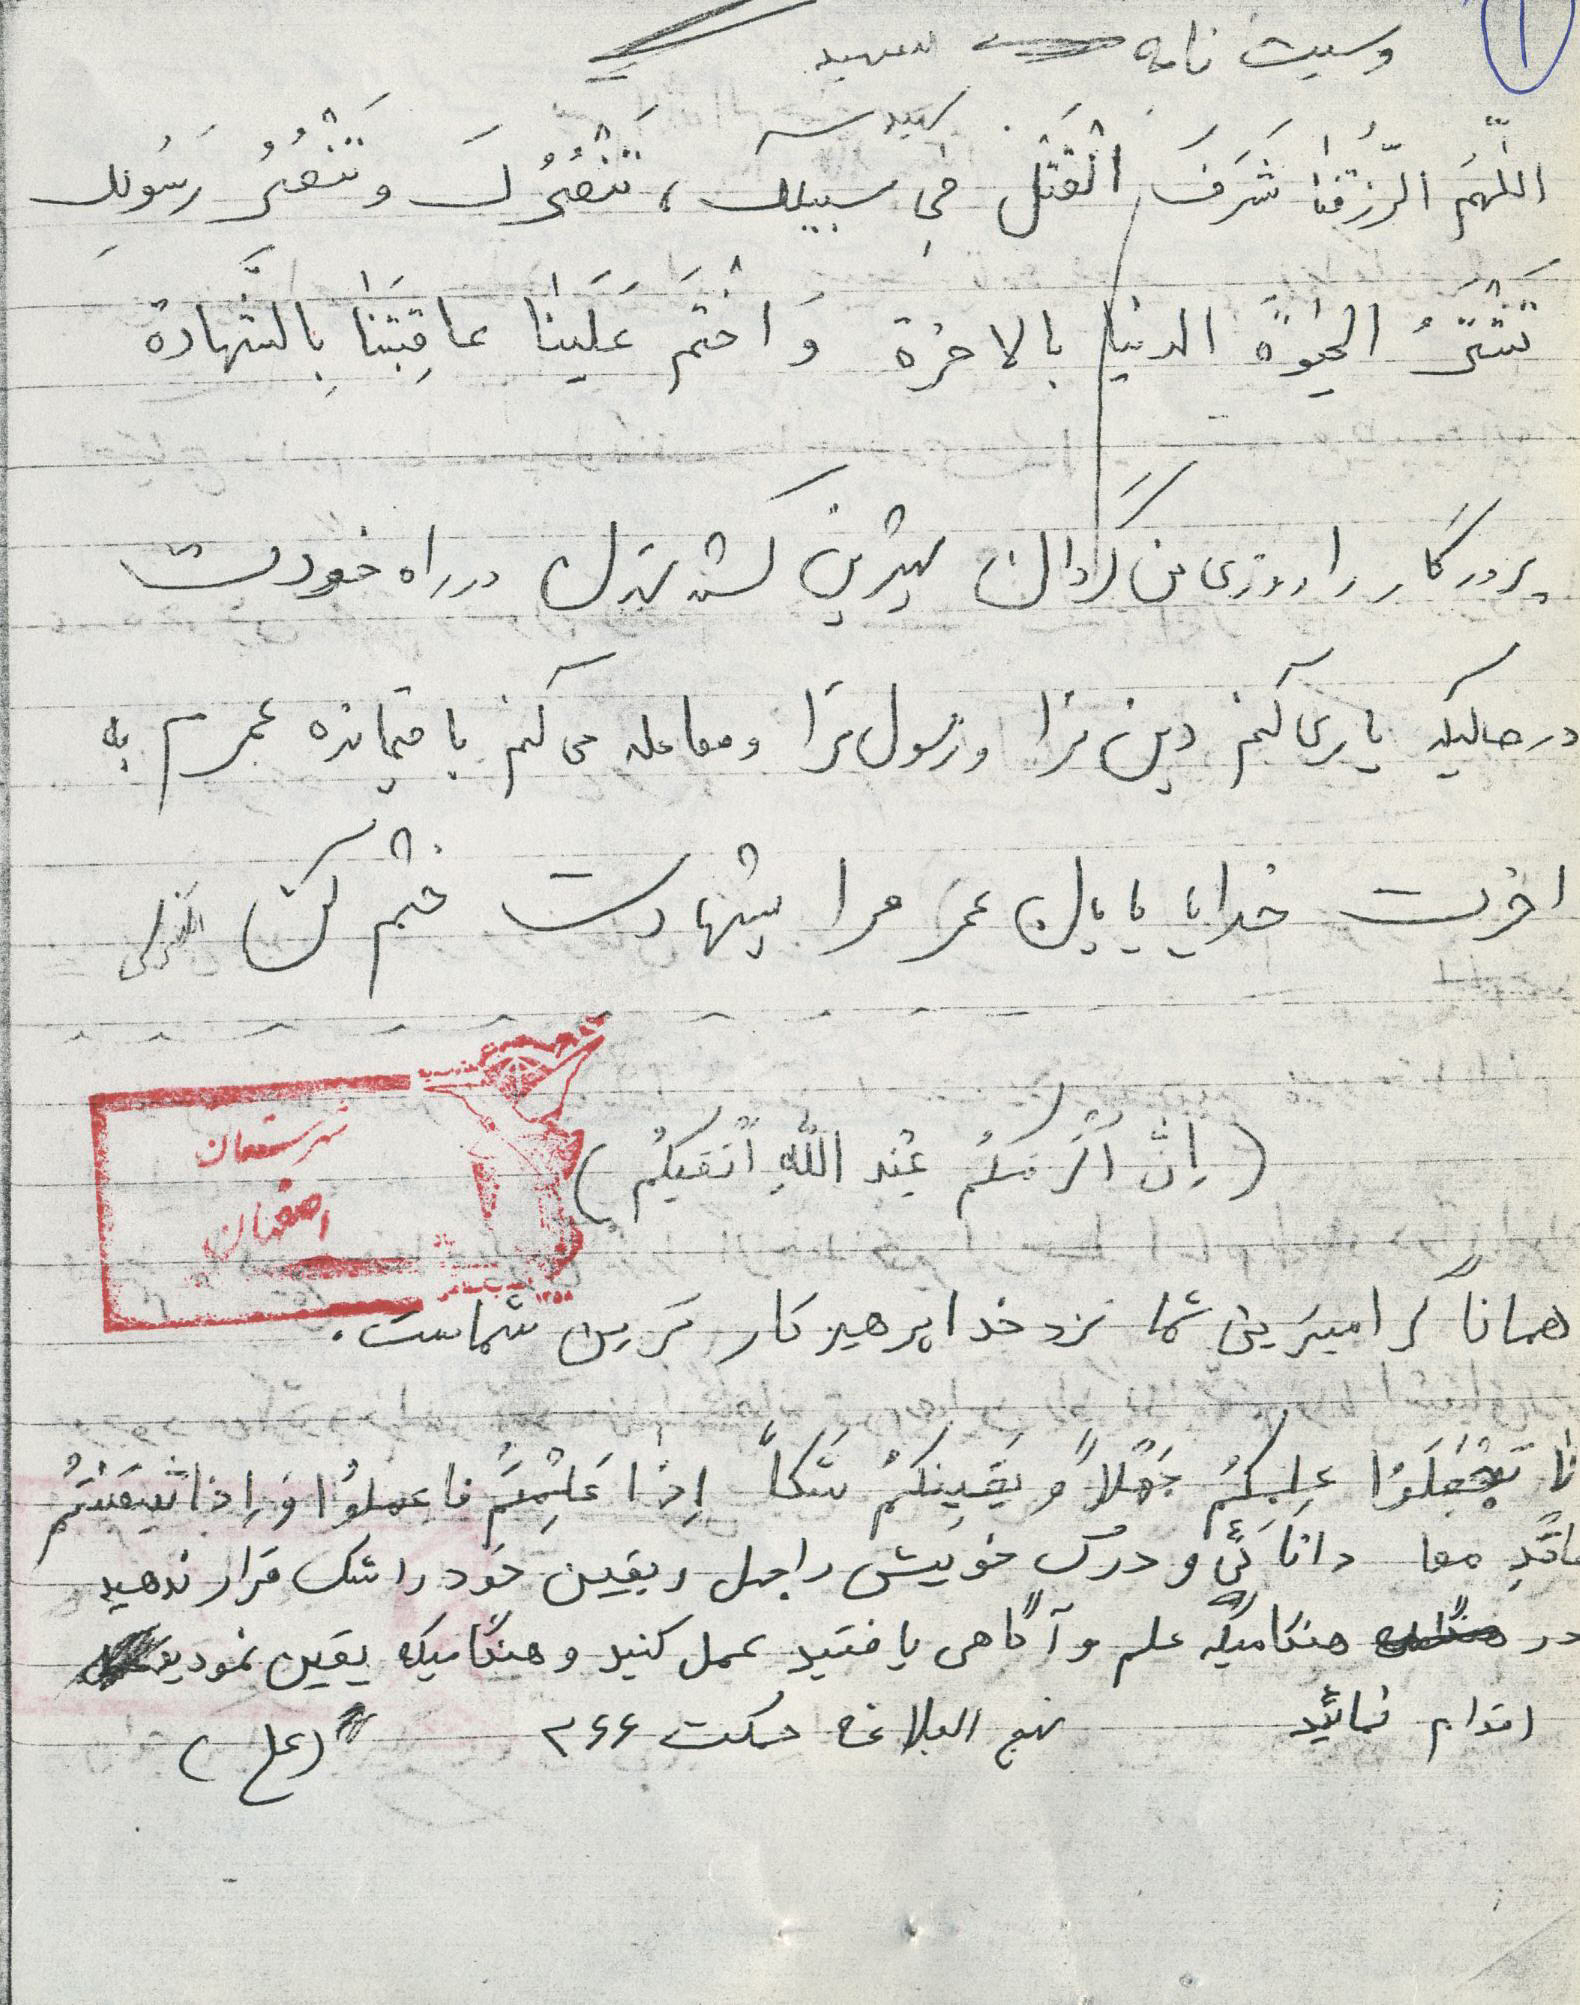 ۱
وصیت نامه شهید
اللّهُمَ الرّزُقنا شَرَفَ الْقَتْل فی سبیلک ، نَنْصُرُکَ و نَنْصُرُ رَسُولِک
نَشْتَرُ الحیٰوةَ الدنیا بالاخرة وَ اخْتَم عَلَینٰا عاقِبَتَنٰا بِالشَّهادة
پروردگار را روزی من گردان بهترین کشته شدن در راه خودت
در حالیکه یاری کنم دین ترا و رسول ترا و معامله می کنم باقیمانده عمرم به
اخرت خدایا پایان عمر مرا بشهادت ختم کن
( اِنَّ اَکْرَمَکُم عِنْد اللّهِ اَتقیکُم )
شهرستان
اصفهان
۱۳۵۸
همانا گرامیترین شما نزد خدا پرهیزکار ترین شماست .
لاٰ تَجْعَلَوُا عِلمکُم جَهْلاً و یَقَینکُمْ شَکاً اِذٰا عَلِمْتُم فاعمَلوُا وَ اِذا تَیَقَنْتُم
دانائی و درک خویش را جهل و یقین خود را شک قرار ندهید
در هنگامیکه علم و آگاهی یافتید عمل کنید و هنگامیکه یقین نمودید
اقدام نمائید نهج البلاغه حکمت ۲۶۶ (علی)